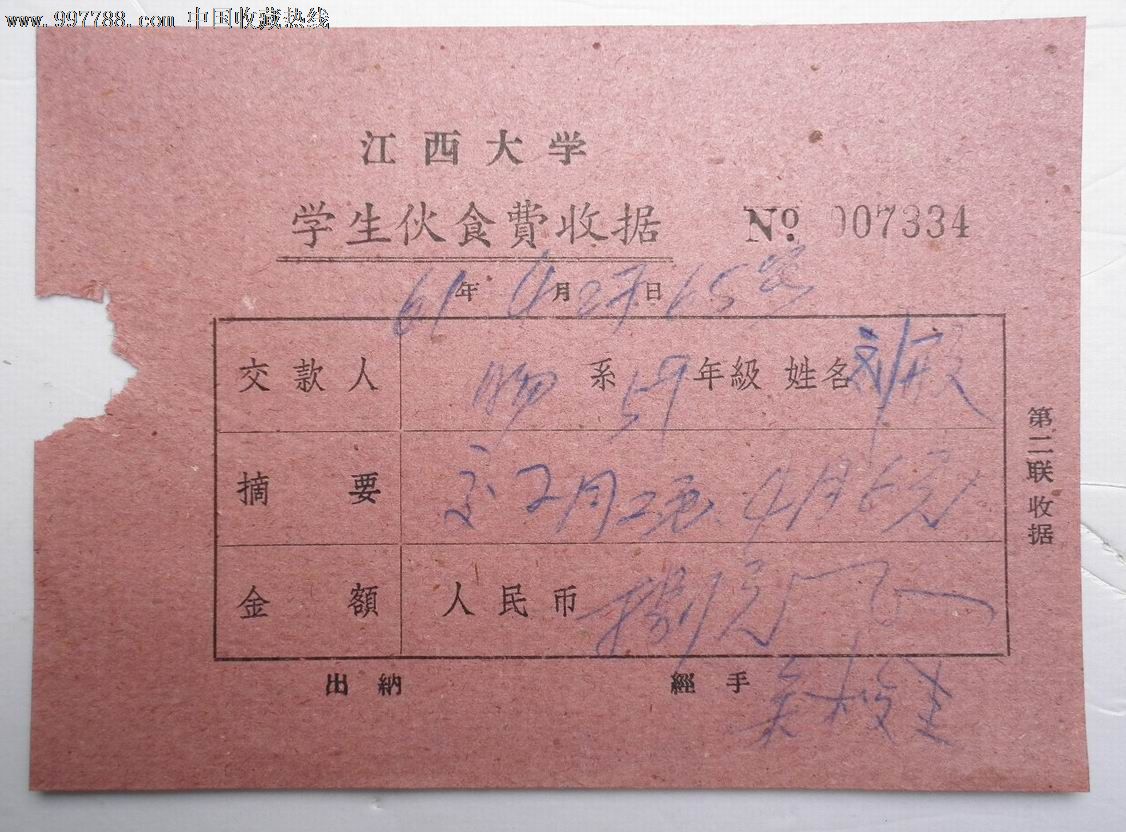 www.997788.com 中国收藏热线
江西大学
学生伙食費收据 №007334
61年4月27日
交款人 物系59年級 姓名刘
摘要 4月6元
金額 人民币捌元
出納 經手
第二联收据